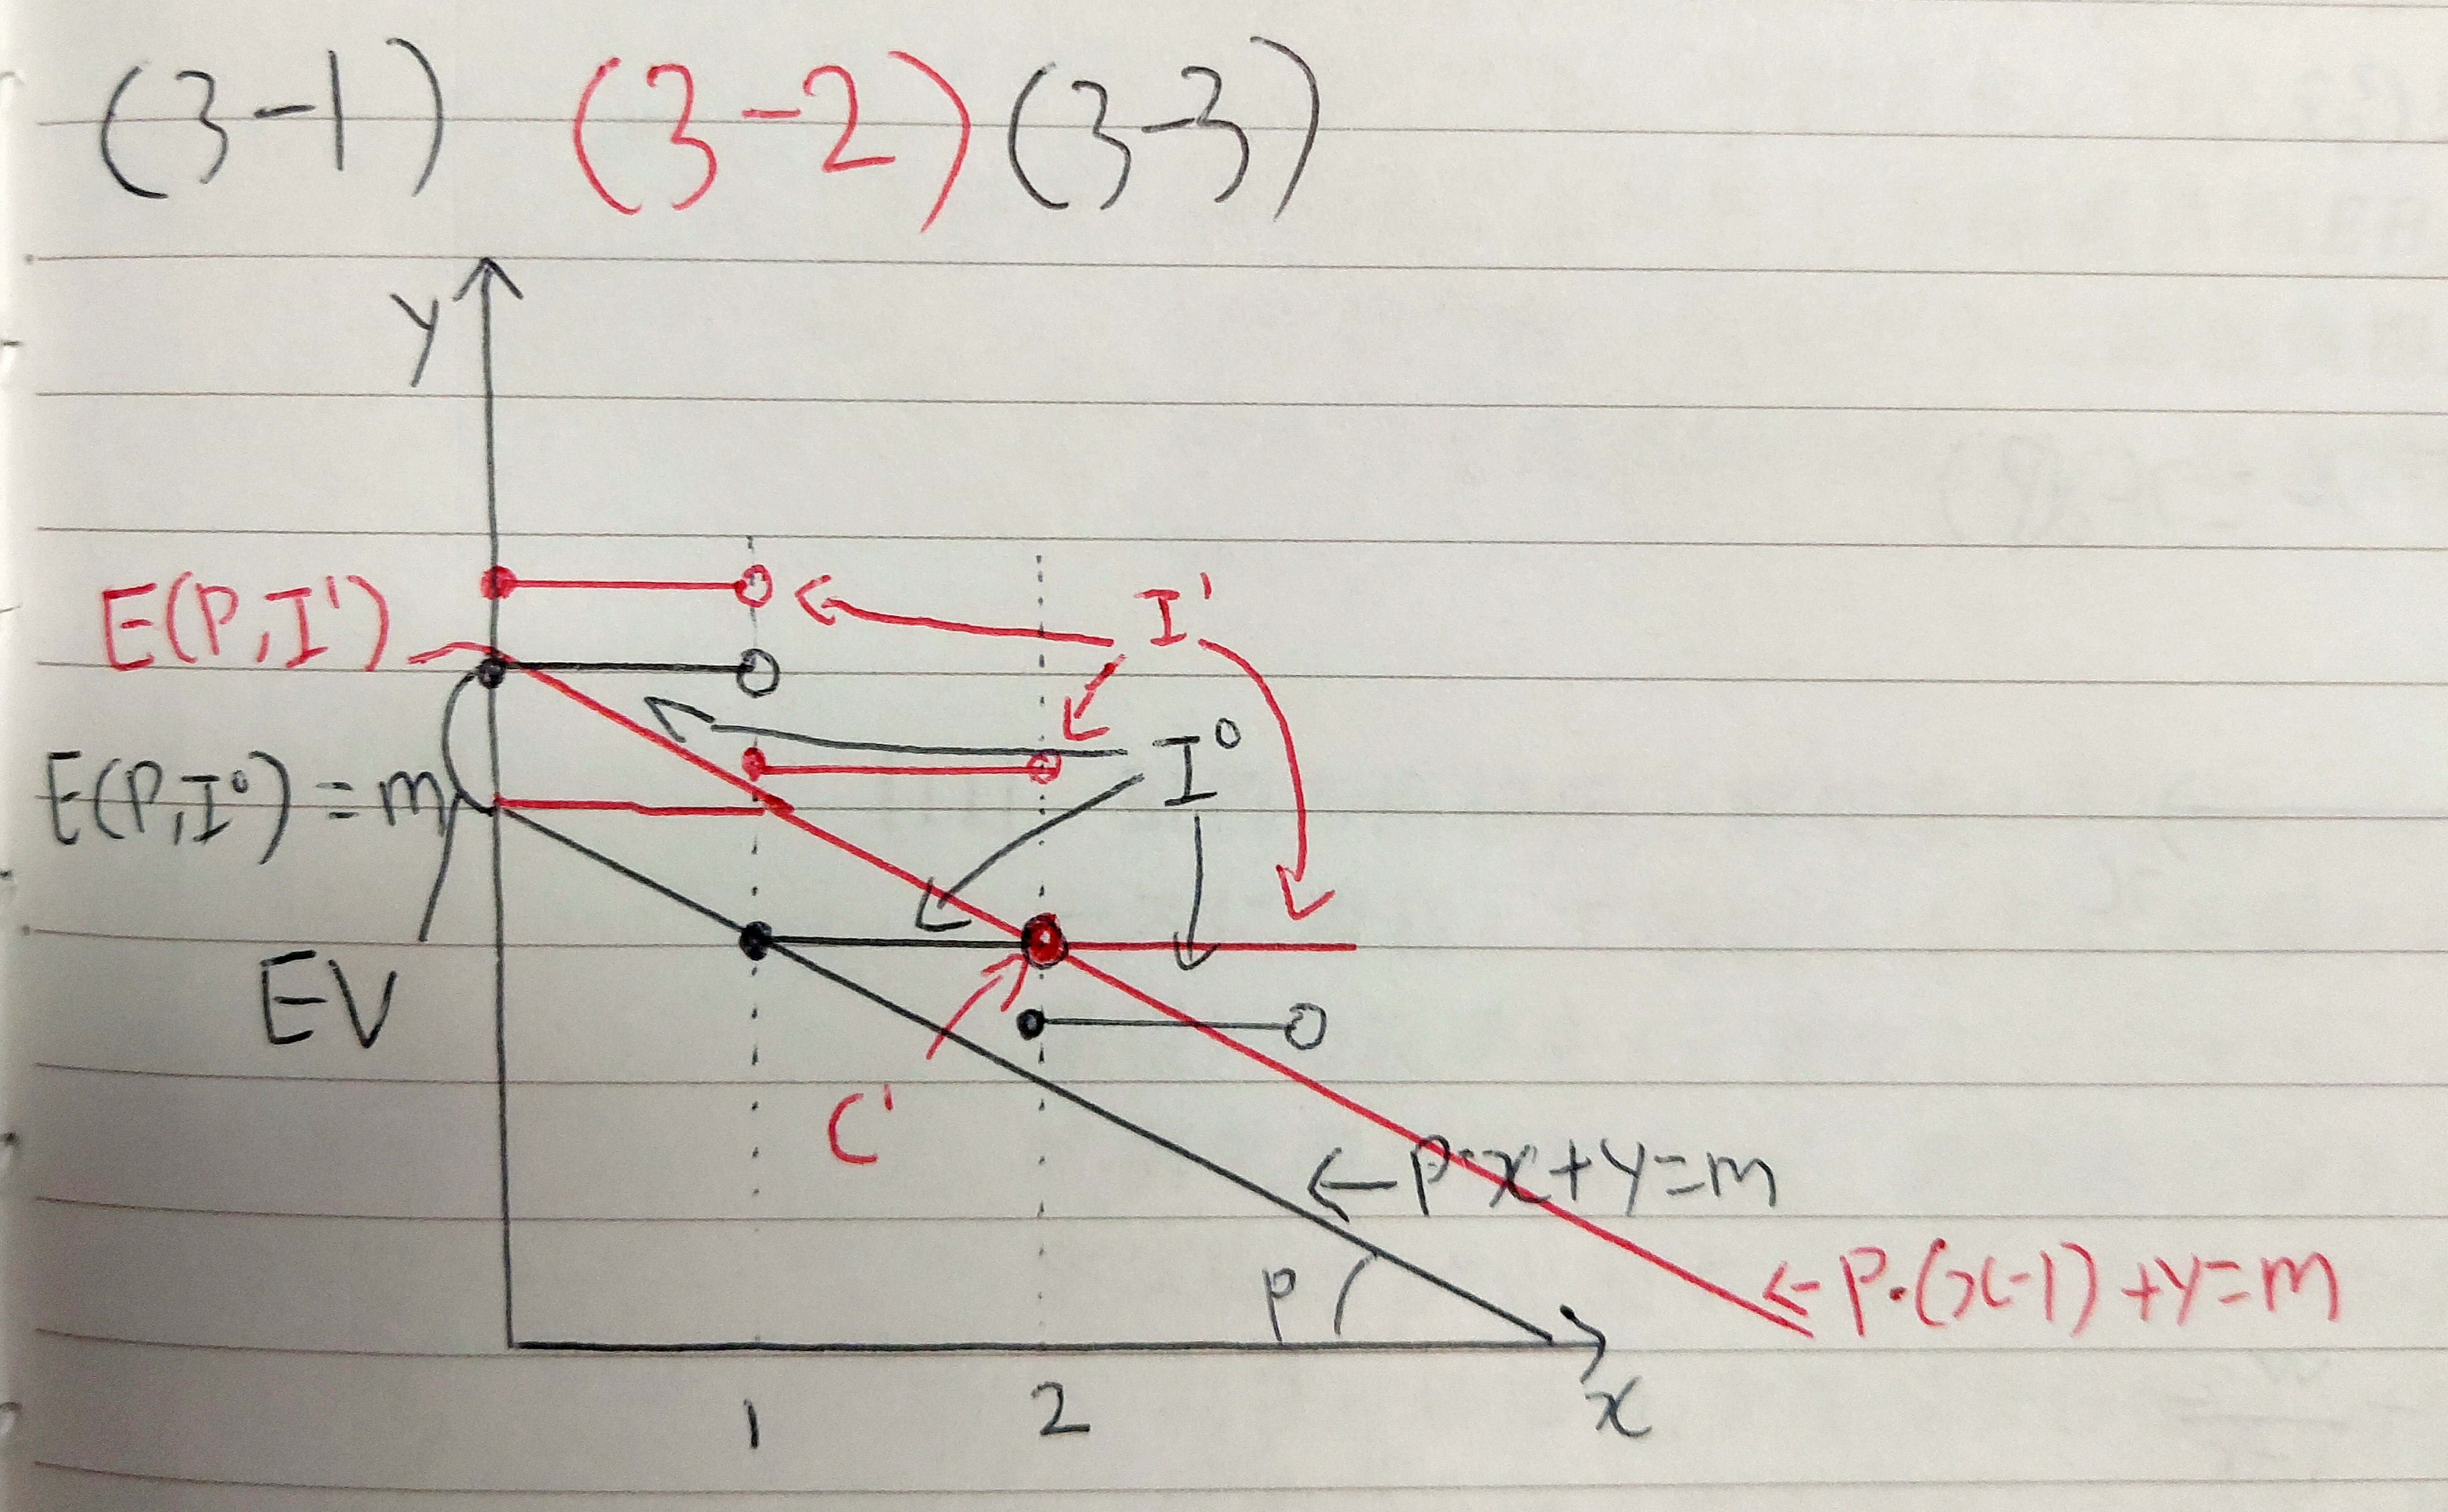 (3-1) (3-2) (3-3)
y
E(P,I')
I'
I⁰
E(P,I⁰)=m
EV
C'
P·x+y=m
P
P·(x-1)+y=m
1 2 x